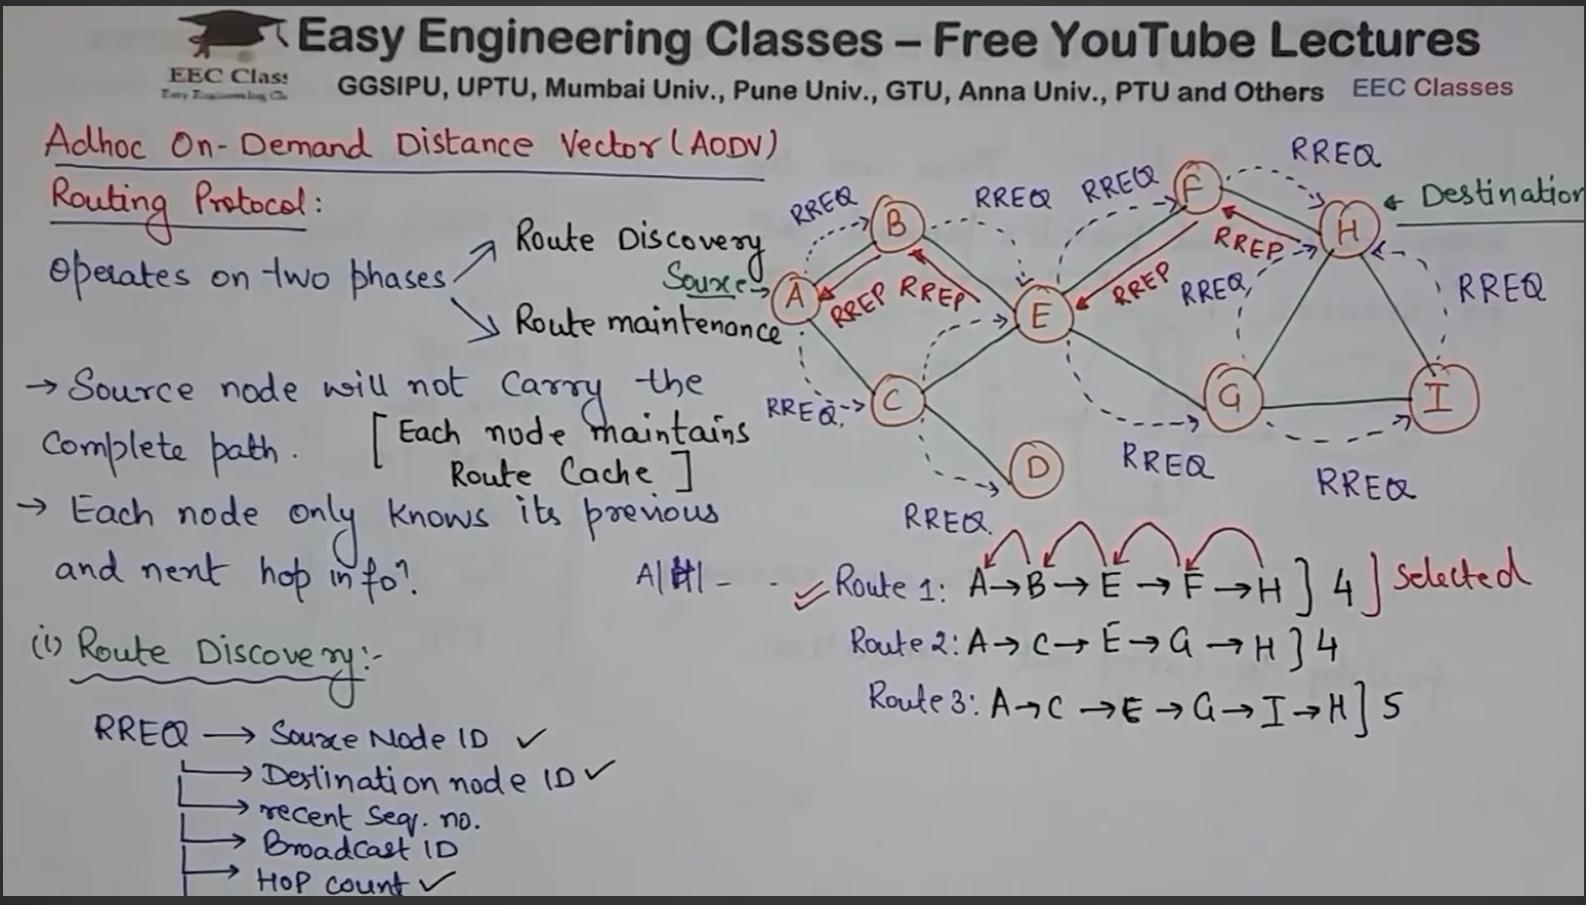 Easy Engineering Classes – Free YouTube Lectures
EEC Clas
GGSIPU, UPTU, Mumbai Univ., Pune Univ., GTU, Anna Univ., PTU and Others EEC Classes
Adhoc On-Demand Distance Vector (AODV)
Routing Protocol:
Operates on two phases
Route Discovery
Route maintenance
→ Source node will not carry the
complete path. [Each node maintains
Route Cache]
→ Each node only knows its previous
and next hop info?
(i) Route Discovery:-
RREQ → Source Node ID ✓
→ Destination node ID ✓
→ recent seq. no.
→ Broadcast ID
→ Hop count ✓
Source → A
B
C
D
E
F
G
H ← Destination
I
RREQ
RREQ
RREQ
RREQ
RREP RREP
RREP
RREP
RREQ
RREQ
RREQ
RREQ
RREQ
RREQ
A|H| - - 
✓ Route 1: A→B→E→F→H ] 4 ] Selected
Route 2: A→C→E→G→H ] 4
Route 3: A→C→E→G→I→H ] 5